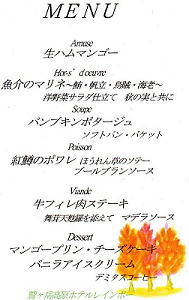 MENU
Amuse
生ハムマンゴー
Hor-s' d'oeuvre
魚介のマリネ〜鮪・帆立・烏賊・海老〜
洋野菜サラダ仕立て 秋の実と共に
Soupe
パンプキンポタージュ
ソフトパン・バケット
Poisson
紅鱒のポワレ ほうれん草のソテー
ブールブランソース
Viande
牛フィレ肉ステーキ
舞茸天麩羅を添えて マデラソース
Dessert
マンゴープリン・チーズケーキ
バニラアイスクリーム
デミタスコーヒー
鷲ヶ岳高原ホテルレインボー